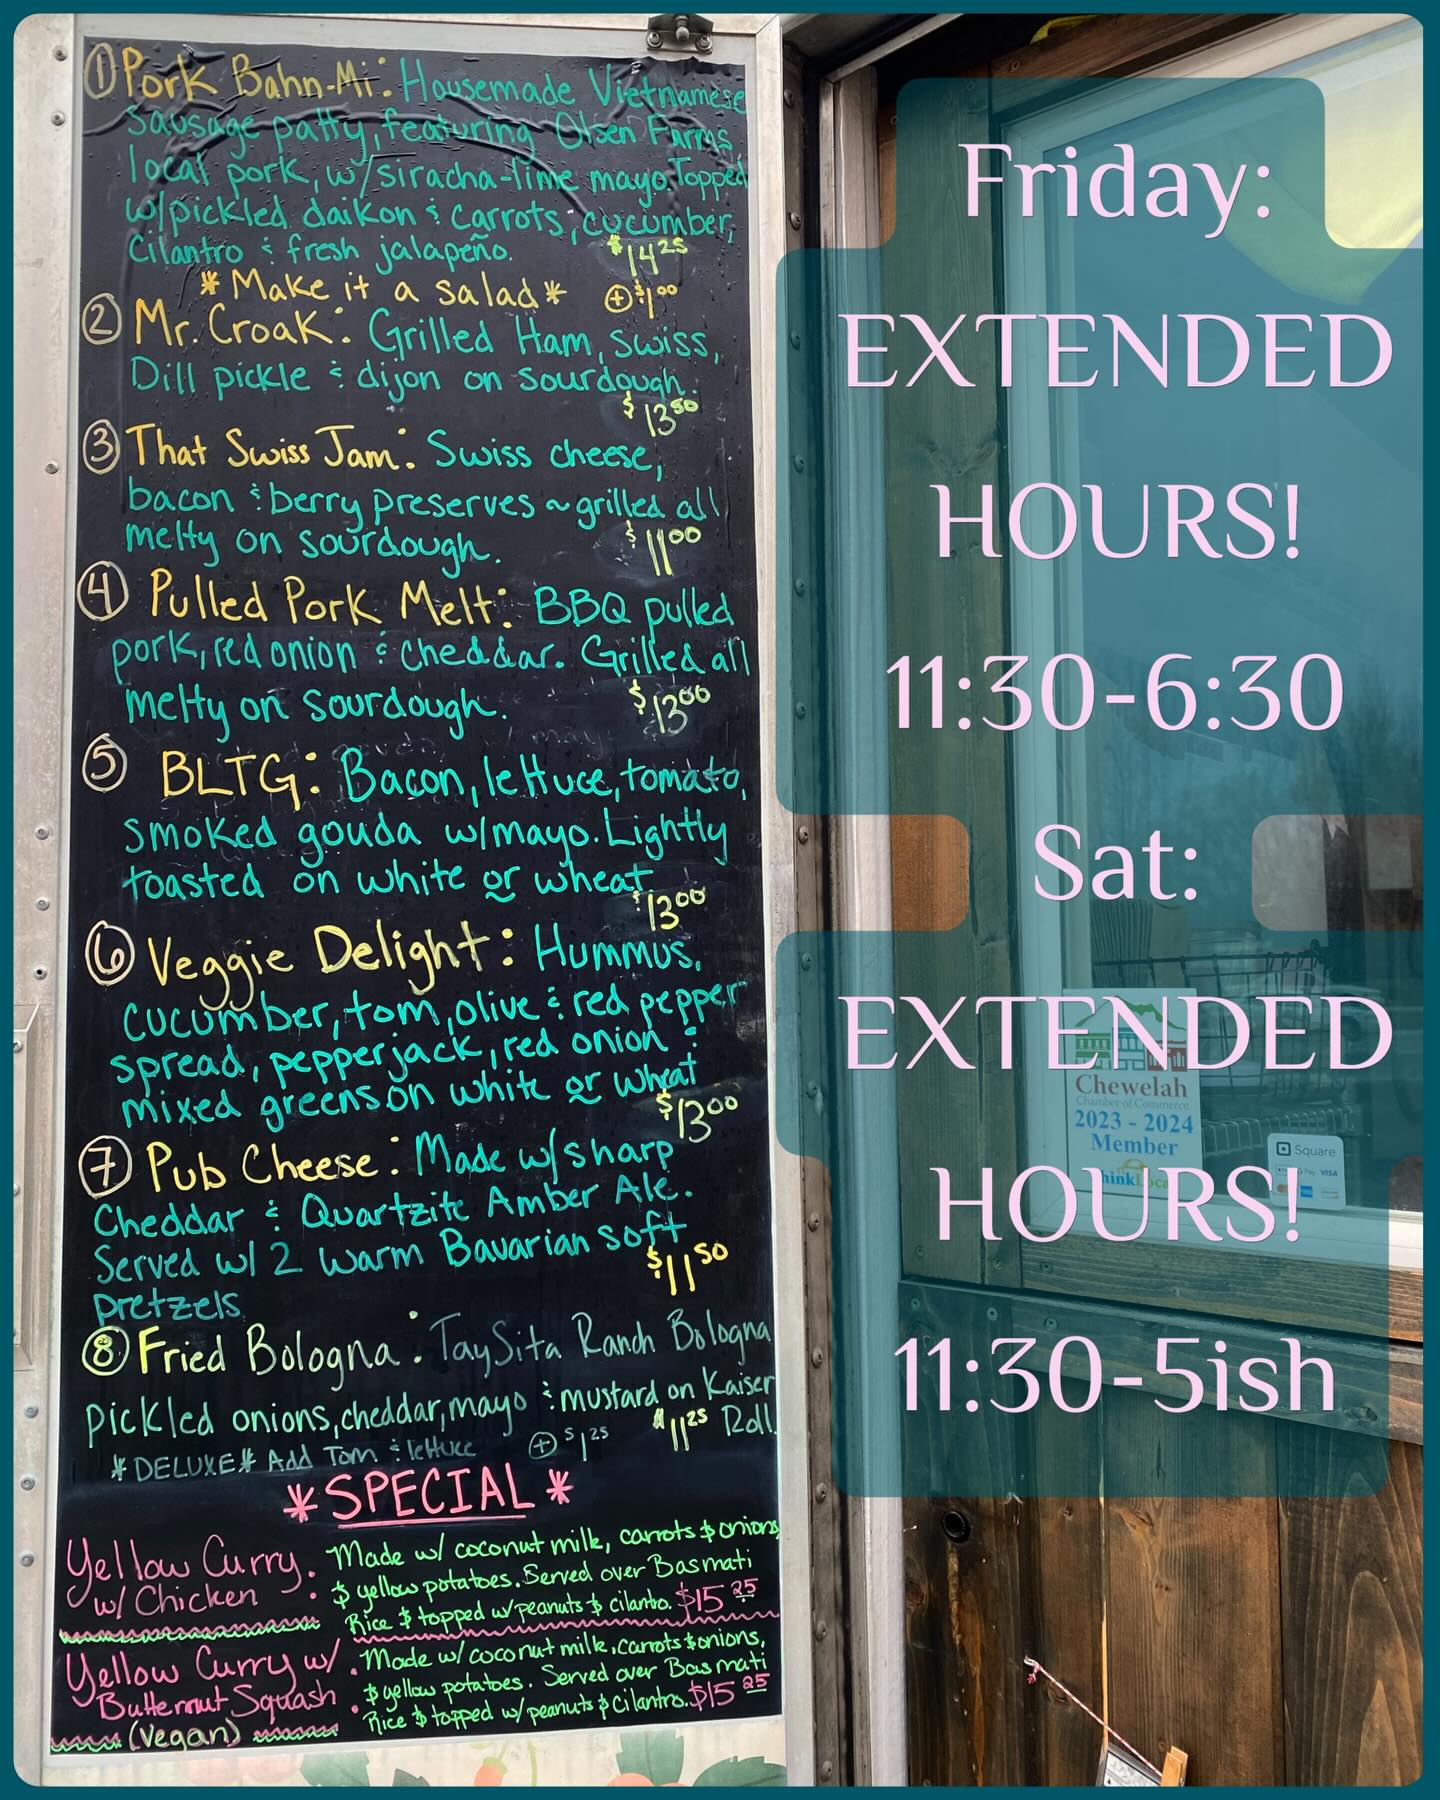 ① Pork Bahn-Mi: Housemade Vietnamese
Sausage patty, featuring Olsen Farms
local pork, w/siracha-lime mayo. Topped
w/pickled daikon & carrots, cucumber,
Cilantro & fresh jalapeño. $14.25
*Make it a salad* ⊕ $1.00
② Mr. Croak: Grilled Ham, swiss,
Dill pickle & dijon on sourdough.
$13.50
③ That Swiss Jam: Swiss cheese,
bacon & berry preserves ~ grilled all
melty on sourdough. $11.00
④ Pulled Pork Melt: BBQ pulled
pork, red onion & cheddar. Grilled all
melty on sourdough. $13.00
⑤ BLTG: Bacon, lettuce, tomato,
smoked gouda w/mayo. Lightly
toasted on white or wheat
$13.00
⑥ Veggie Delight: Hummus,
cucumber, tom, olive & red pepper
spread, pepperjack, red onion &
mixed greens on white or wheat
$13.00
⑦ Pub Cheese: Made w/sharp
Cheddar & Quartzite Amber Ale.
Served w/ 2 warm Bavarian soft
pretzels $11.50
⑧ Fried Bologna: TaySita Ranch Bologna
pickled onions, cheddar, mayo & mustard on Kaiser
$11.25 Roll.
*DELUXE* Add Tom & lettuce ⊕ $1.25
*SPECIAL*
Yellow Curry w/ Chicken: Made w/ coconut milk, carrots & onions
& yellow potatoes. Served over Basmati
Rice & topped w/ peanuts & cilantro. $15.25
Yellow Curry w/ Butternut Squash (Vegan): Made w/ coconut milk, carrots & onions,
& yellow potatoes. Served over Basmati
Rice & topped w/ peanuts & cilantro. $15.25
Friday:
EXTENDED
HOURS!
11:30-6:30
Sat:
EXTENDED
HOURS!
11:30-5ish
Chewelah
Chamber of Commerce
2023 - 2024
Member
Square
Pay VISA